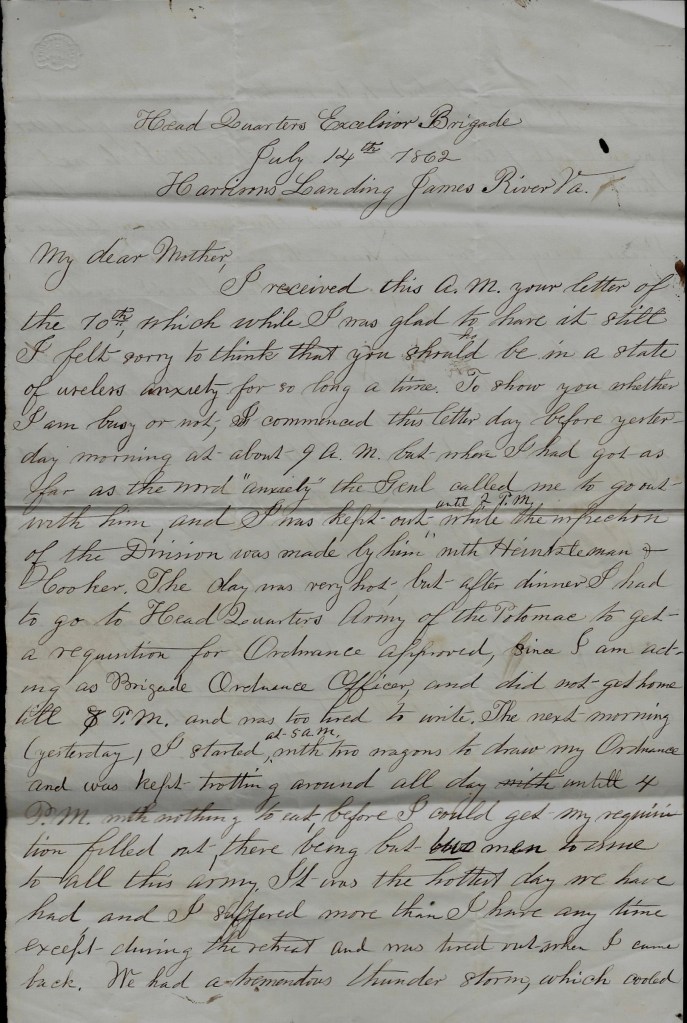 Head Quarters Excelsior Brigade
July 14th 1862
Harrisons Landing James River Va.
My dear Mother,
I received this A.M. your letter of
the 10th, which while I was glad to have it still
I felt sorry to think that you should be in a state
of useless anxiety for so long a time. To show you whether
I am busy or not, I commenced this letter day before yester-
day morning at about 9 A.M. but when I had got as
far as the word "anxiety" the Genl called me to go out
with him, and I was kept out until 2 P.M. while the inspection
of the Division was made by him with Heintzleman &
Hooker. The day was very hot, but after dinner I had
to go to Head Quarters Army of the Potomac to get
a requisition for Ordnance approved, since I am act-
ing as Brigade Ordnance Officer, and did not get home
till 8 P.M. and was too tired to write. The next morning
(yesterday) I started at 5 a.m. with two wagons to draw my Ordnance
and was kept trotting around all day with untill 4
P.M. with nothing to eat, before I could get my requisi
tion filled out, there being but two men to issue
to all this army. It was the hottest day we have
had, and I suffered more than I have any time
except during the retreat and was tired out when I came
back. We had a tremendous thunder storm, which cooled